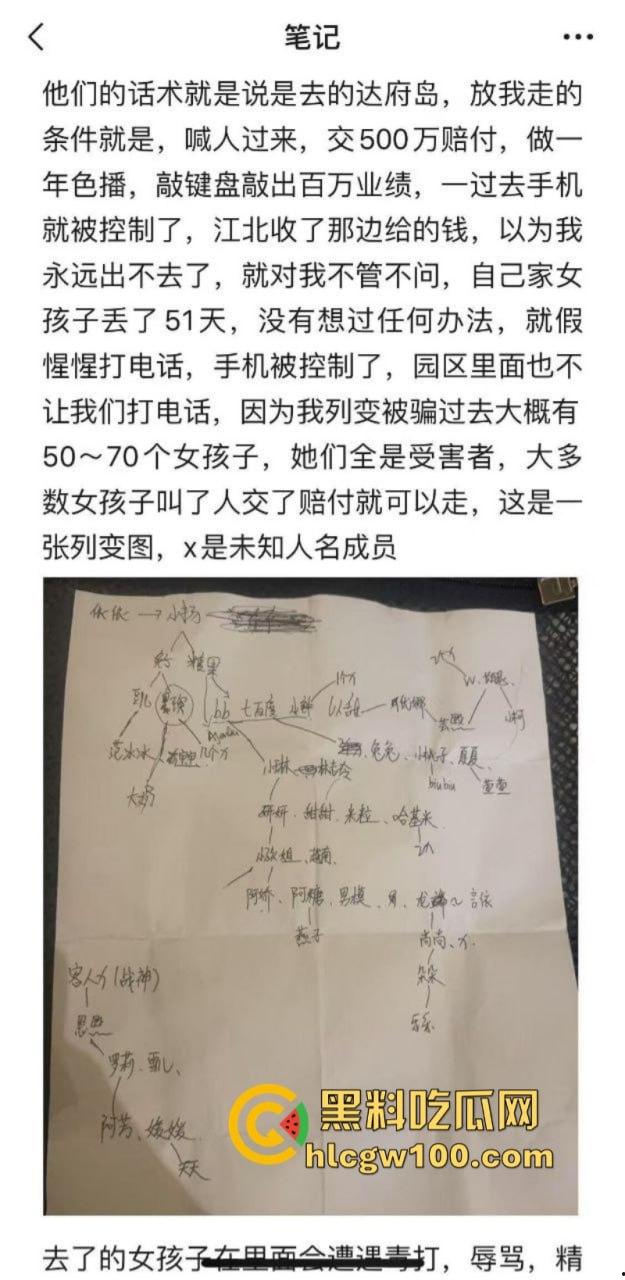 笔记
他们的话术就是说是去的达府岛，放我走的
条件就是，喊人过来，交500万赔付，做一
年色播，敲键盘敲出百万业绩，一过去手机
就被控制了，江北收了那边给的钱，以为我
永远出不去了，就对我不管不问，自己家女
孩子丢了51天，没有想过任何办法，就假
惺惺打电话，手机被控制了，园区里面也不
让我们打电话，因为我列变被骗过去大概有
50～70个女孩子，她们全是受害者，大多
数女孩子叫了人交了赔付就可以走，这是一
张列变图，x是未知人名成员
依依 → 小杨
糖果
bb 七百度
范冰冰
大奶
小琳
兔兔、小桃子、夏夏
biubiu
妍妍、甜甜、米粒、哈基米
阿娇、阿糖、男模
燕子
尚尚、x.
朵朵
乐乐
客人x(战神)
思思
罗莉、甄儿、
阿芳、媛媛
天天
黑料吃瓜网
hlcgw100.com
去了的女孩子在里面会遭遇毒打，辱骂，精